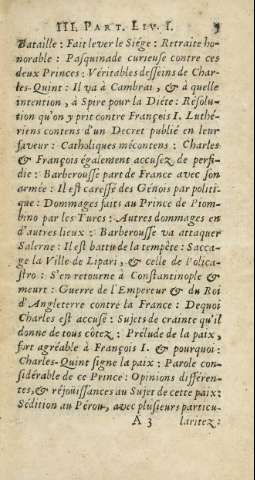 III. PART. LIV. I. 5
Bataille : Fait lever le Siége : Retraite ho-
norable : Pasquinade curieuse contre ces
deux Princes : Véritables desseins de Char-
les-Quint : Il va à Cambrai, & à quelle
intention, à Spire pour la Diéte : Résolu-
tion qu'on y prit contre François I. Luthé-
riens contens d'un Decret publié en leur
faveur : Catholiques mécontens : Charles
& François également accusez de perfi-
die : Barberousse part de France avec son
armée : Il est caressé des Génois par politi-
que : Dommages faits au Prince de Piom-
bino par les Turcs : Autres dommages en
d'autres lieux : Barberousse va attaquer
Salerne : Il est battu de la tempête : Sacca-
ge la Ville de Lipari, & celle de Policas-
tro : S'en retourne à Constantinople &
meurt : Guerre de l'Empereur & du Roi
d'Angleterre contre la France : Dequoi
Charles est accusé : Sujets de crainte qu'il
donne de tous côtez : Prélude de la paix,
fort agréable à François I. & pourquoi :
Charles-Quint signe la paix : Parole con-
sidérable de ce Prince : Opinions différen-
tes, & réjoüissances au Sujet de cette paix :
Sédition au Pérou, avec plusieurs particu-
A 3 laritez :